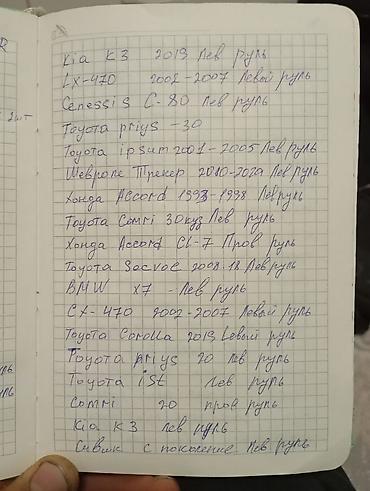 R
2 шт
Kia K3 2019 Лев руль
LX-470 2002-2007 Левый руль
Genessis G-80 лев руль
Toyota priys -30
Toyota ipsum 2001-2005 Лев руль
Шевроле Трекер 2010-2020 Лев руль
Хонда Accord 1993-1998 Лев руль
Toyota Comri 30куз Лев руль
Хонда Accord CL-7 Прав руль
Toyota 2008. Лев руль
BMW x7 - Лев руль
GX-470 2002-2007 Левый руль
Toyota Corolla 2019 Левый руль
Toyota priys 20 лев руль
Toyota ist лев руль
Comri 20 прав руль
Kia K3 лев руль
Сивик с поколение Лев руль
ль
уль